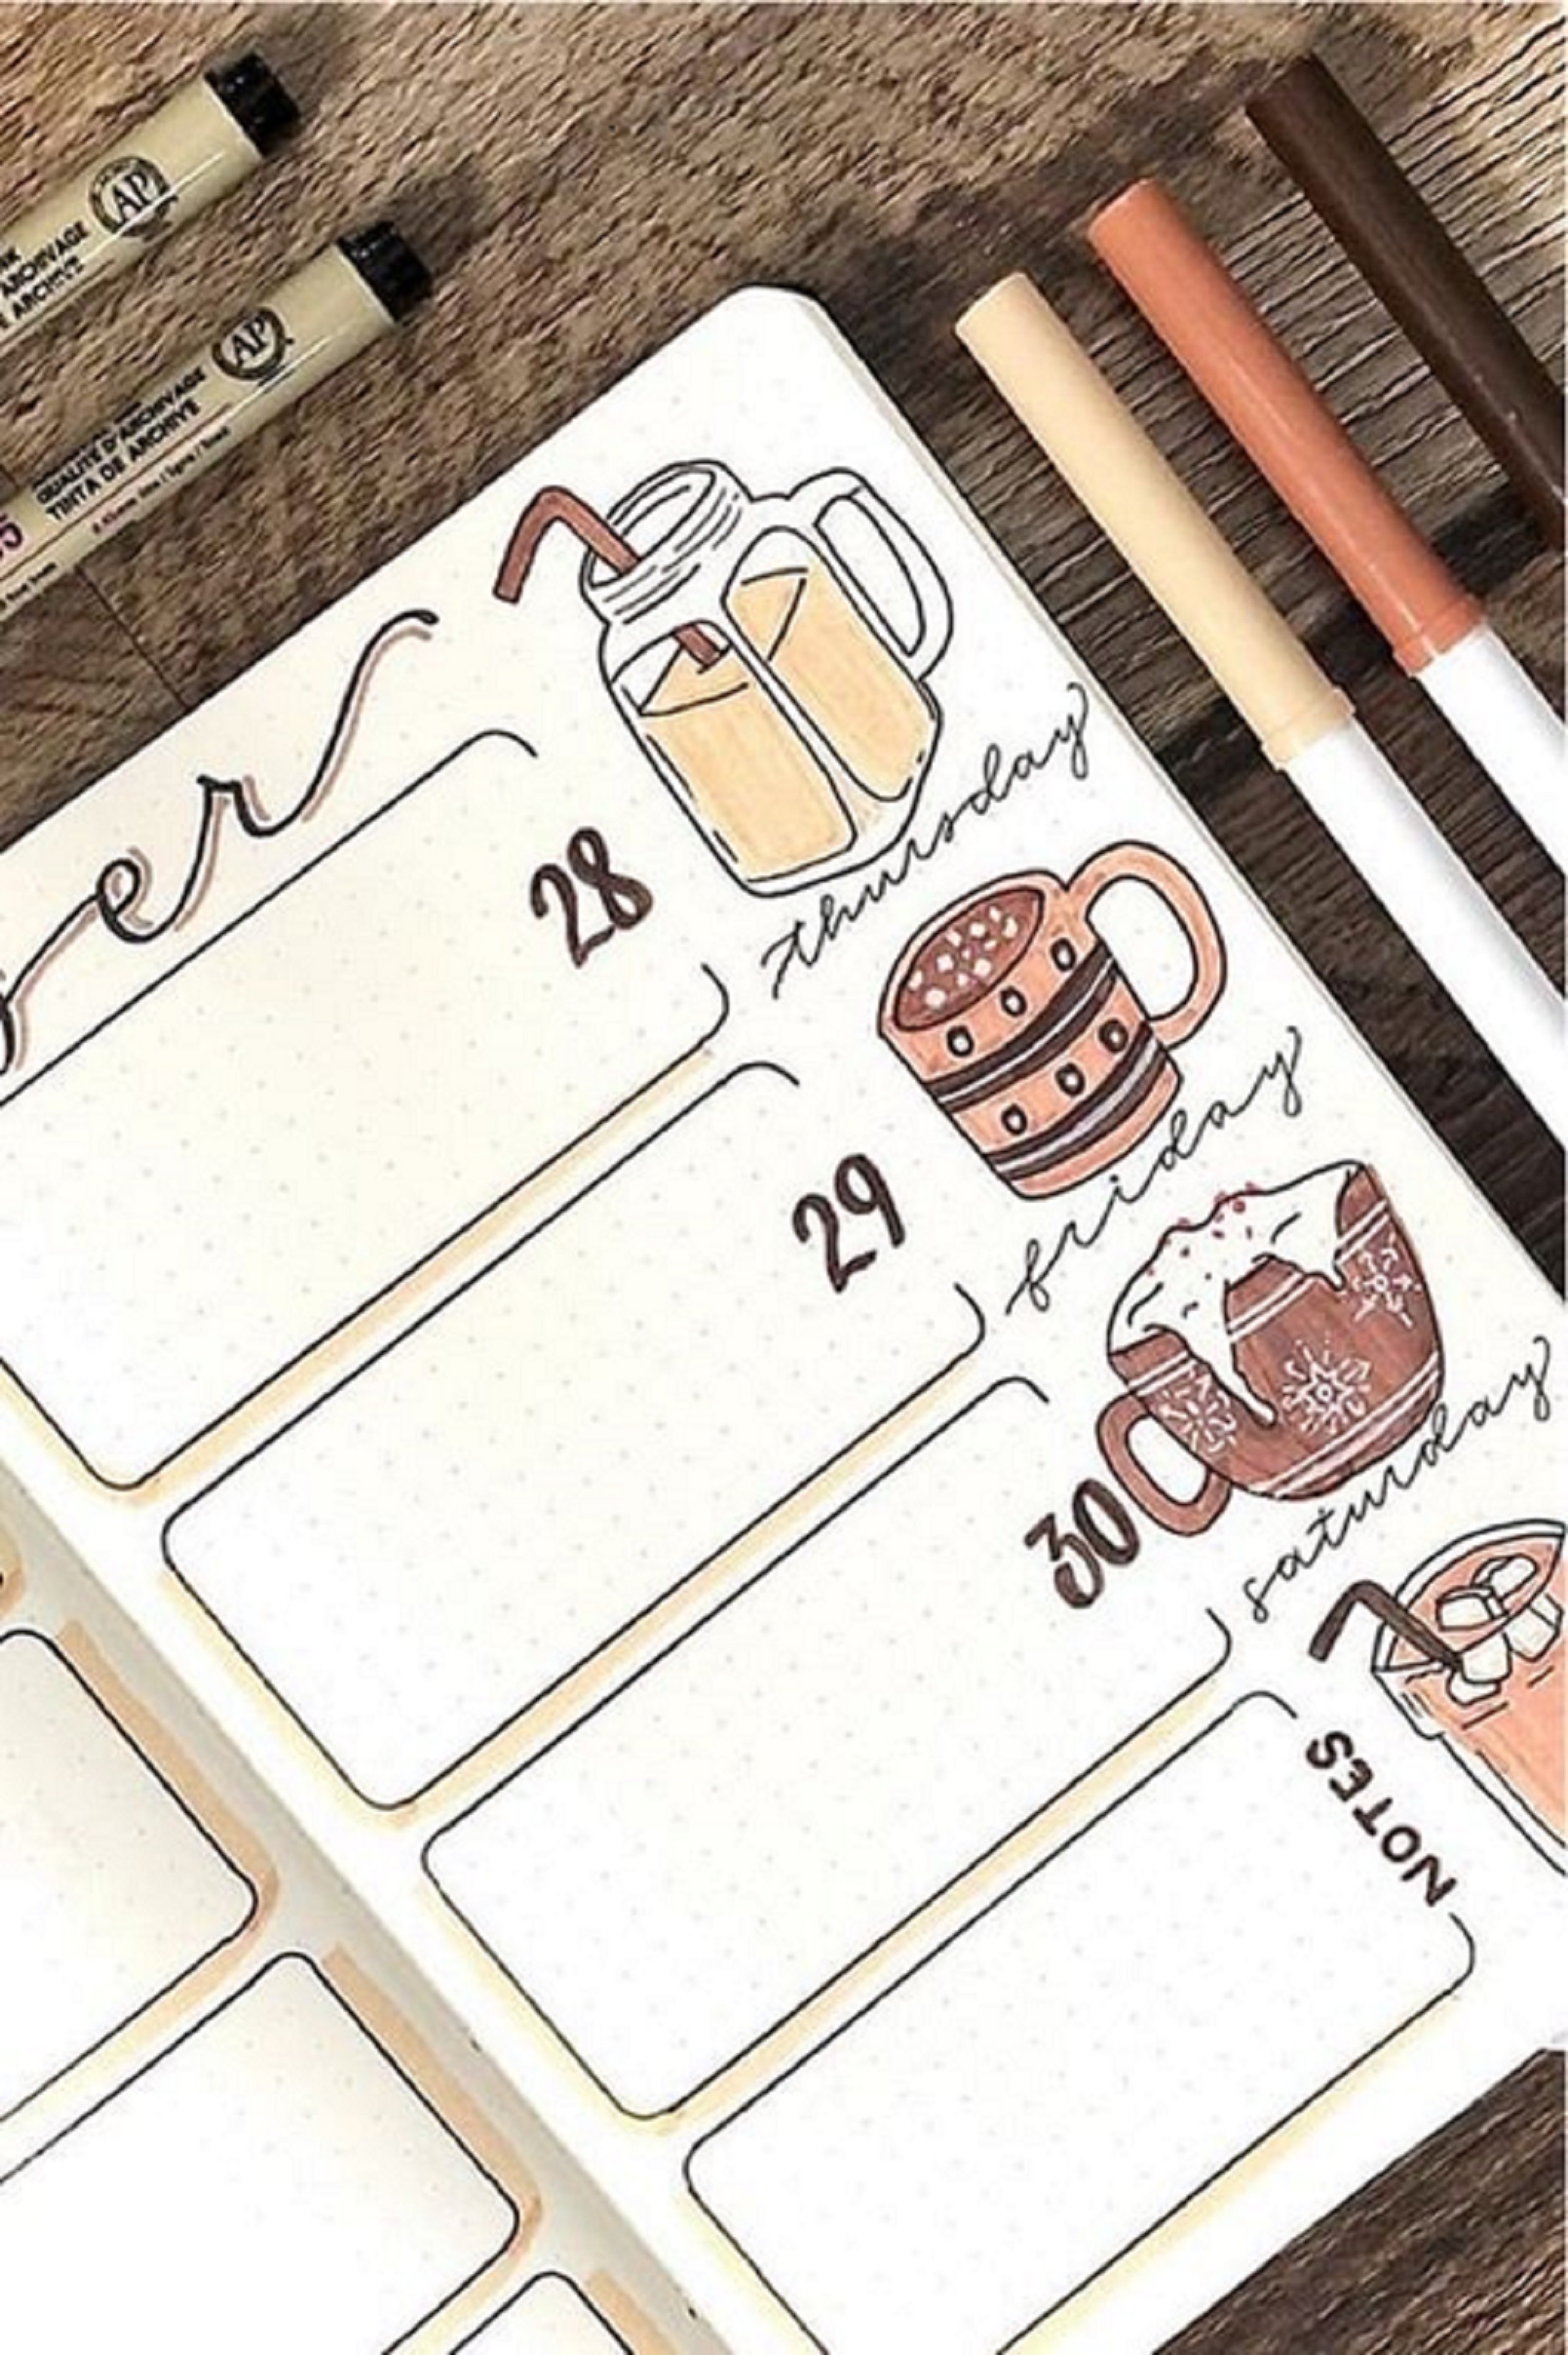 er
28
thursday
29
friday
30
saturday
NOTES
05
QUALITÉ D'ARCHIVAGE
TINTA DE ARCHIVE
AP
ARCHIVAGE
ARCHIVE
AP